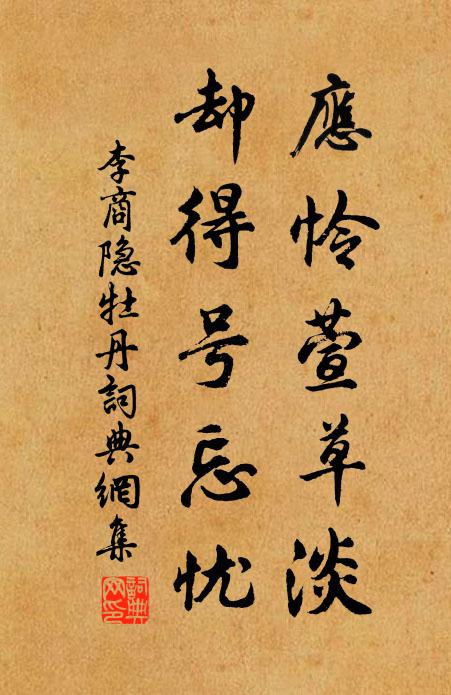 應怜萱草淡
却得号忘忧
李商隐牡丹詞典網集
詞典网印